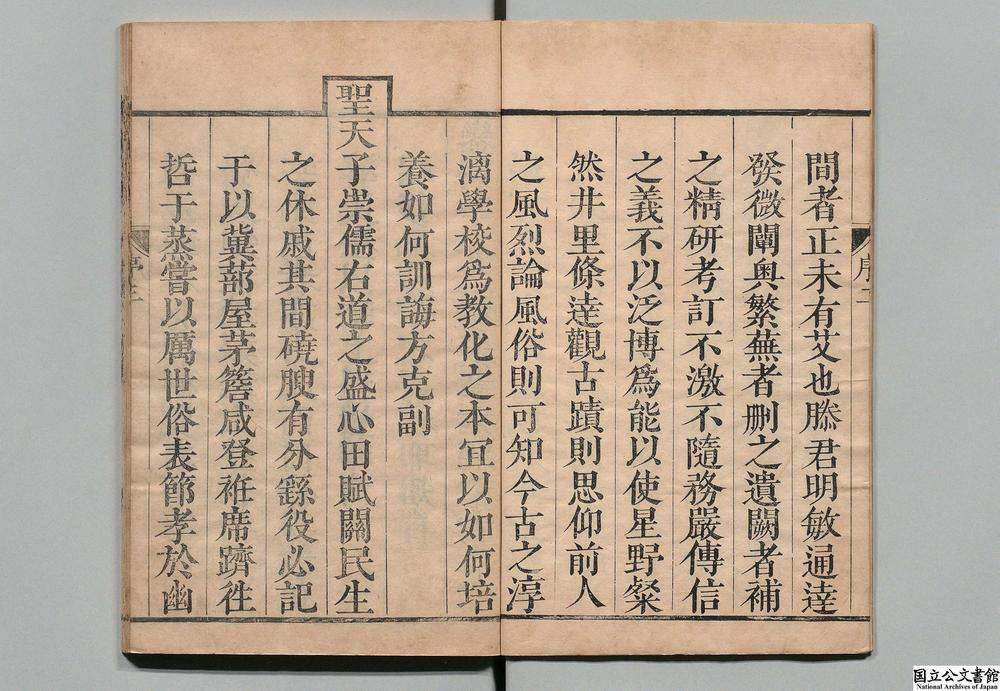 間者正未有艾也滕君明敏通達
發微闡奥繁蕪者刪之遺闕者補
之精研考訂不激不隨務嚴傳信
之義不以泛博爲能以使星野粲
然井里條達觀古蹟則思仰前人
之風烈論風俗則可知今古之淳
漓學校爲教化之本宜以如何培
養如何訓誨方克副
聖天子崇儒右道之盛心田賦關民生
之休戚其間磽腴有分繇役必記
于以冀蔀屋茅簷咸登袵席躋徃
哲于蒸嘗以厲世俗表節孝於幽
序二
序三
国立公文書館
National Archives of Japan